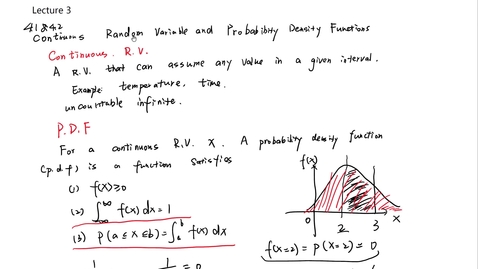 Lecture 3
4.1 & 4.2
Continuous Random Variable and Probability Density Functions
Continuous R.V.
A R.V. that can assume any value in a given interval.
Example: temperature, time.
uncountable infinite.
P.D.F
For a continuous R.V. X. A probability density function
(p.d.f) is a function satisfies
(1) f(x)≥0
(2) ∫_{-∞}^{∞} f(x) dx = 1
(3) P(a≤X≤b) = ∫_a^b f(x) dx
f(x)
0 2 3 x
f(x=2) = P(X=2) = 0